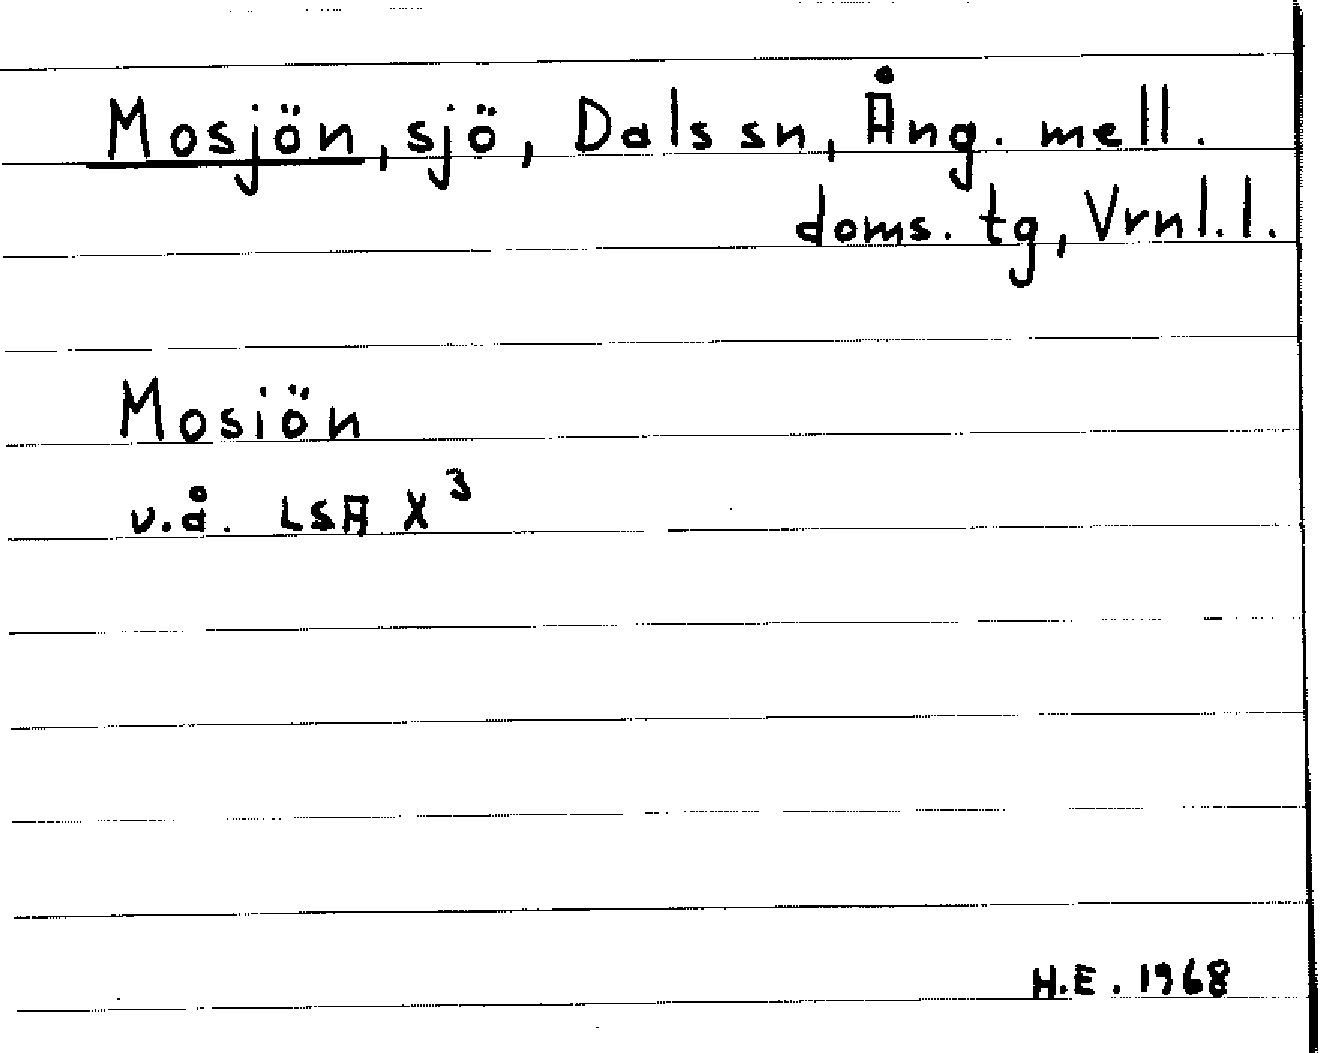 Mosjön, sjö, Dals sn, Ång. mell.
doms. tg, Vrnl. l.
Mosiön
v.å. LSA X³
H.E. 1968